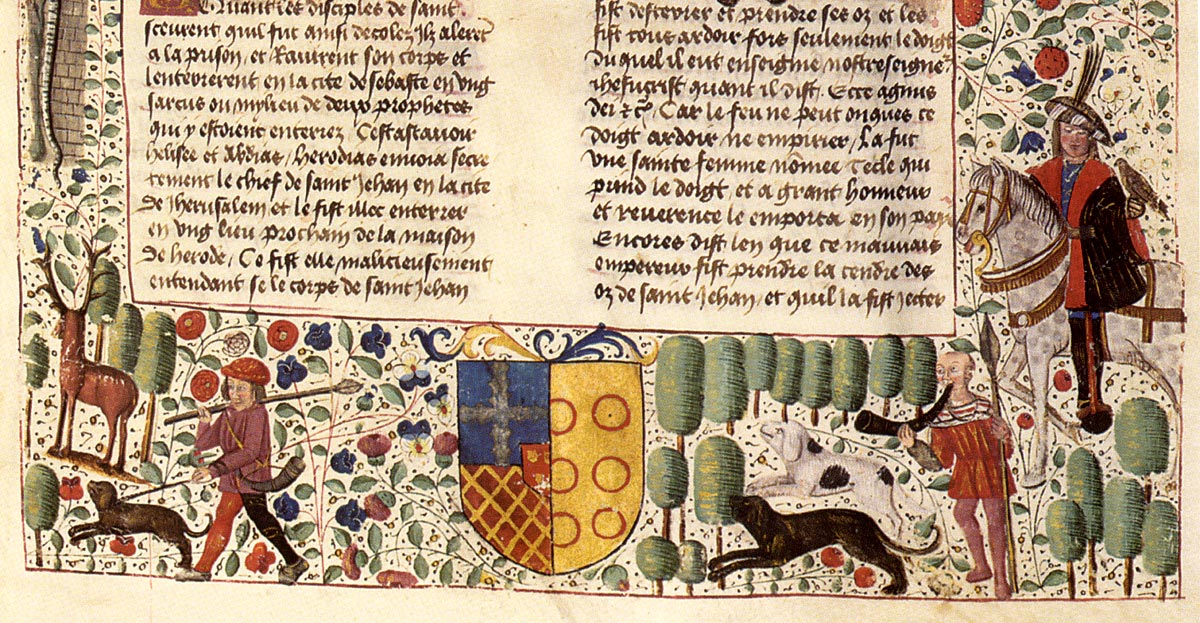 Quant les disciples de saint
sceurent quil fut ainsi decolez Ilz alerēt
a la prison, et Ravirent son corps et
lenterrerent en la cite de sebaste en ung
sarcus ou mylieu de deux prophetes
qui y estoient enterrez, Cestassavoir
helisee et Abdias, herodias envoia secre
tement le chief de saint Jehan en la cite
de Jherusalem et le fist illec enterrer
en ung lieu prochain de la maison
de herode, Ce fist elle malicieusement
entendant se le corps de saint Jehan
fist desterrer et prendre ses oz et les
fist tous ardoir fors seulement le doigt
du quel il eut enseigne nostreseigneᵣ
ihesucrist quant il dist, Ecce agnus
dei &c̄ Car le feu ne peut onques ce
doigt ardoir ne empirier, La fut
une sainte femme nomee Tecle qui
prind le doigt et a grant honneur
et reverence le emporta en son pais
Encores dist len que ce mauvais
empereur fist prendre la cendre des
oz de saint Jehan, et quil la fist Jecter